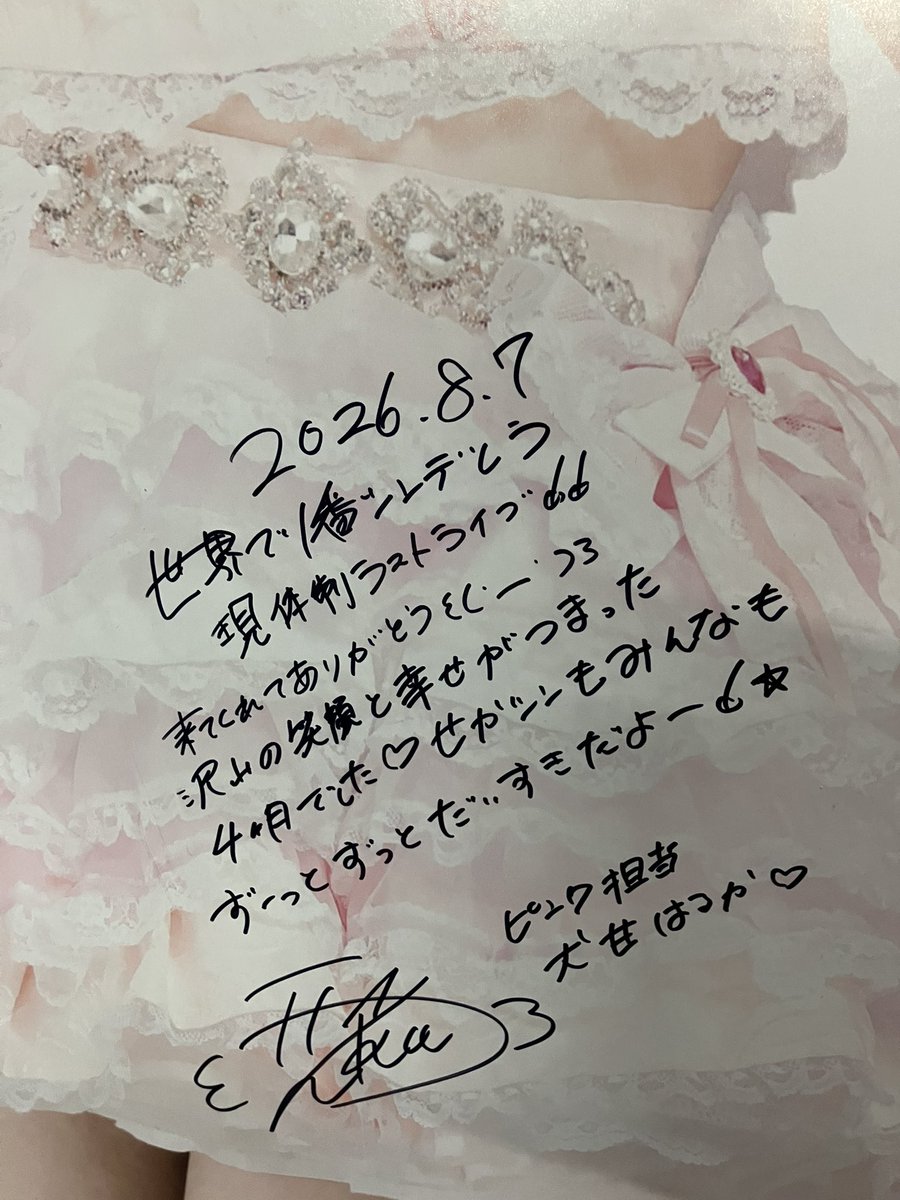 2026.8.7
世界で1番ツンデレとう
現体制ラストライブ
来てくれてありがとう
沢山の笑顔と幸せがつまった
4ヶ月でした♡ せがンンもみんなも
ずーっとずっとだいすきだよー ☆
ピンク担当
犬甘はるか♡